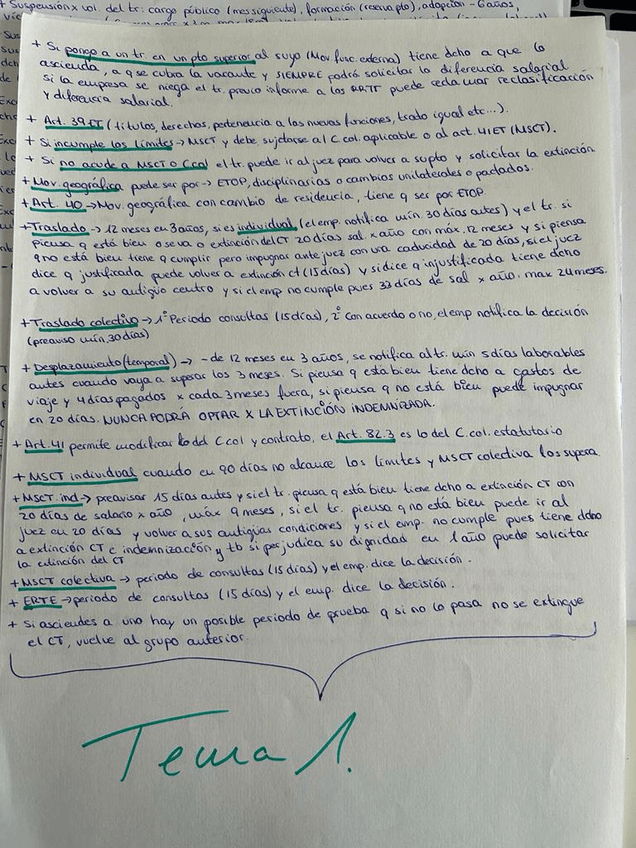 + Suspensión x vol. del tr: cargo público (mes siguiente), formación (reserva pto), adopción - 6 años,
+ Si pongo a un tr en un pto superior al suyo (Mov. func. externa) tiene dcho a que lo
ascienda, a q se cubra la vacante y SIEMPRE podrá solicitar la diferencia salarial
si la empresa se niega el tr. previo informe a los RRTT puede reclamar reclasificación
y diferencia salarial.
+ Art. 39 ET (títulos, derechos, pertenencia a las nuevas funciones, trado igual etc...).
+ Si incumple los límites → MSCT y debe sujetarse al C. col. aplicable o al art. 41 ET (MSCT).
+ Si no acude a MSCT o Ccol el tr. puede ir al juez para volver a su pto y solicitar la extinción
+ Mov. geográfica puede ser por → ETOP, disciplinarias o cambios unilaterales o pactados.
+ Art. 40 → Mov. geográfica con cambio de residencia, tiene q ser por ETOP.
+ Traslado → 12 meses en 3 años, si es individual (el emp. notifica mín. 30 días antes) y el tr. si
piensa q está bien o se va o extinción del CT 20 días sal. x año con máx. 12 meses y si piensa
q no está bien tiene q cumplir pero impugnar ante juez con una caducidad de 20 días, si el juez
dice q justificada puede volver a extinción ct (15 días) y si dice q injustificada tiene dcho
a volver a su antiguo centro y si el emp no cumple pues 33 días de sal x año. max 24 meses.
+ Traslado colectivo → 1º Periodo consultas (15 días), 2º Con acuerdo o no, el emp notifica la decisión
(preaviso mín. 30 días)
+ Desplazamiento (temporal) → - de 12 meses en 3 años, se notifica al tr. mín 5 días laborables
antes cuando vaya a superar los 3 meses. Si piensa q está bien tiene dcho a gastos de
viaje y 4 días pagados x cada 3 meses fuera, si piensa q no está bien puede impugnar
en 20 días. NUNCA PODRÁ OPTAR X LA EXTINCIÓN INDEMNIZADA.
+ Art. 41 permite modificar lo del C col y contrato, el Art. 82.3 es lo del C. col. estatutario
+ MSCT individual cuando en 90 días no alcance los límites y MSCT colectiva los supera.
+ MSCT ind → preavisar 15 días antes y si el tr. piensa q está bien tiene dcho a extinción CT con
20 días de salario x año, máx 9 meses, si el tr. piensa q no está bien puede ir al
juez en 20 días y volver a sus antiguas condiciones y si el emp. no cumple pues tiene dcho
a extinción CT e indemnización y tb si perjudica su dignidad en 1 año puede solicitar
la extinción del CT
+ MSCT colectiva → periodo de consultas (15 días) y el emp. dice la decisión.
+ ERTE → periodo de consultas (15 días) y el emp. dice la decisión.
+ Si asciendes a uno hay un posible periodo de prueba q si no lo pasa no se extingue
el CT, vuelve al grupo anterior.
Tema 1.